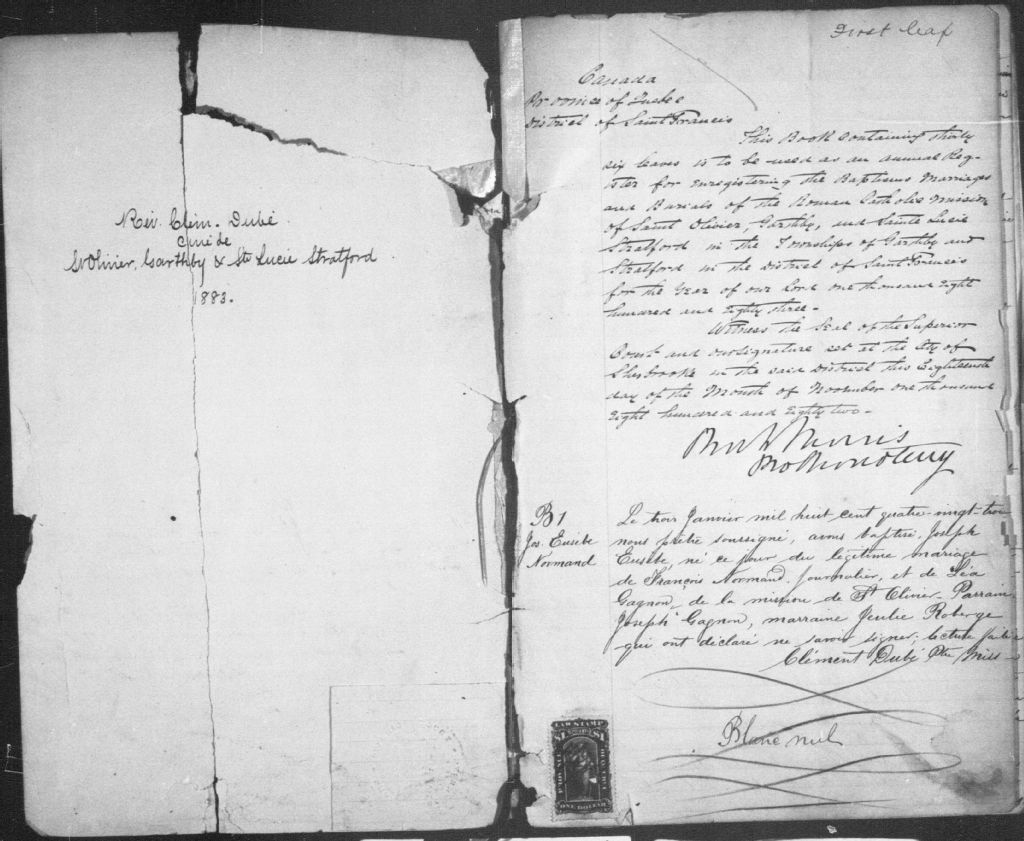 Rev. Clém. Dubé
curé de
St Olivier, Garthby & Ste Lucie Stratford
1883.
First leaf
Canada
Province of Quebec
District of Saint Francis
This Book Containing thirty
six leaves is to be used as an annual Reg-
ister for enregistering the Baptisms Marriages
and Burials of the Roman Catholic Mission
of Saint Olivier, Garthby, and Sainte Lucie
Stratford in the Townships of Garthby and
Stratford in the District of Saint Francis
for the Year of our Lord one thousand eight
hundred and eighty three -
Witness the Seal of the Superior
Court and our signature set at the City of
Sherbrooke in the said District this Eighteenth
day of the Month of November one thousand
eight hundred and eighty two -
Morris
Prothonotary
B 1
Jos. Eusèbe
Normand
Le trois Janvier mil huit cent quatre-vingt-trois
nous prêtre soussigné, avons baptisé, Joseph
Eusèbe, né ce jour du légitime mariage
de François Normand, journalier, et de Léa
Gagnon, de la mission de St Olivier - Parrain,
Joseph Gagnon, marraine Roberge
qui ont déclaré ne savoir signer; lecture faite
Clément Dubé Ptre Miss -
Blanc nul
LAW STAMP
$1 $1
ONE DOLLAR